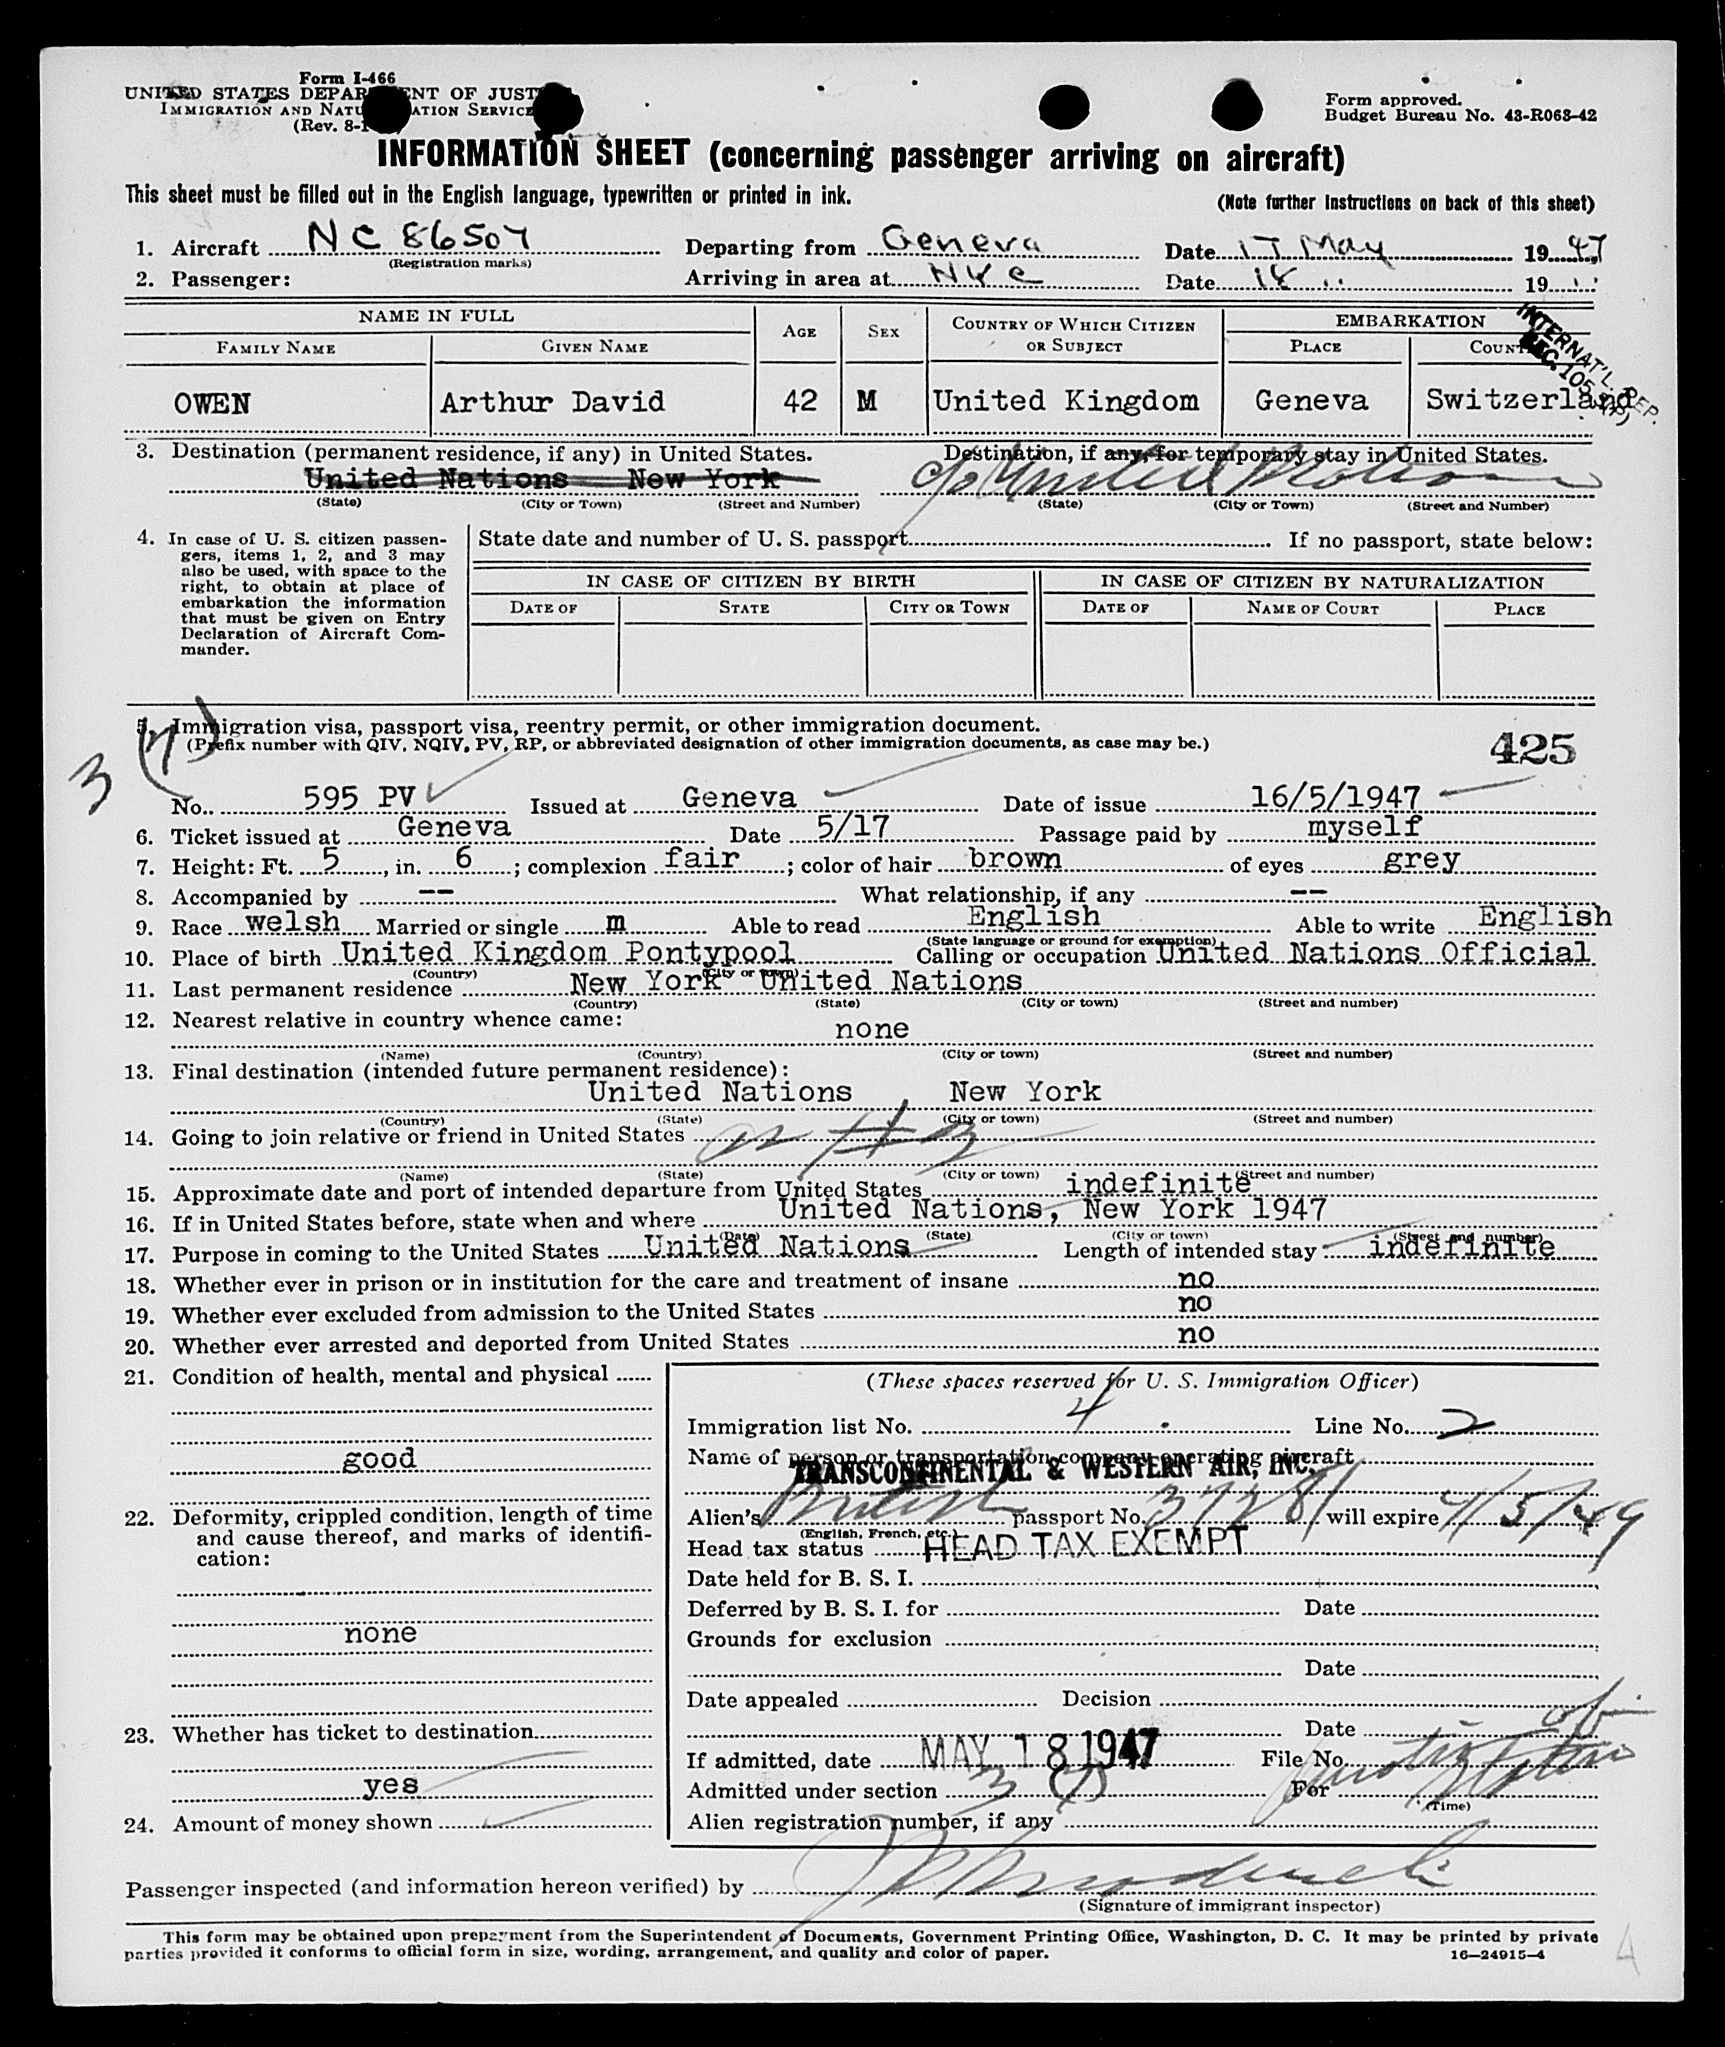 Form I-466
UNITED STATES DEPARTMENT OF JUSTICE
IMMIGRATION AND NATURALIZATION SERVICE
(Rev. 8-1
Form approved.
Budget Bureau No. 43-R063-42
INFORMATION SHEET (concerning passenger arriving on aircraft)
This sheet must be filled out in the English language, typewritten or printed in ink.
(Note further instructions on back of this sheet)
1. Aircraft NC 86507 Departing from Geneva Date 17 May 1947
(Registration marks)
2. Passenger: Arriving in area at NYC Date 18 " 19 "
INTERNAT'L. DEP.
NAME IN FULL AGE SEX COUNTRY OF WHICH CITIZEN OR SUBJECT EMBARKATION
FAMILY NAME GIVEN NAME PLACE COUNTRY
OWEN Arthur David 42 M United Kingdom Geneva Switzerland
3. Destination (permanent residence, if any) in United States. Destination, if any, for temporary stay in United States.
United Nations New York c/o United Nations
(State) (City or Town) (Street and Number) (State) (City or Town) (Street and Number)
4. In case of U. S. citizen passengers, items 1, 2, and 3 may also be used, with space to the right, to obtain at place of embarkation the information that must be given on Entry Declaration of Aircraft Commander.
State date and number of U. S. passport If no passport, state below:
IN CASE OF CITIZEN BY BIRTH IN CASE OF CITIZEN BY NATURALIZATION
DATE OF STATE CITY OR TOWN DATE OF NAME OF COURT PLACE
5. Immigration visa, passport visa, reentry permit, or other immigration document.
(Prefix number with QIV, NQIV, PV, RP, or abbreviated designation of other immigration documents, as case may be.)
425
3 (7)
No. 595 PV Issued at Geneva Date of issue 16/5/1947
6. Ticket issued at Geneva Date 5/17 Passage paid by myself
7. Height: Ft. 5, in. 6; complexion fair; color of hair brown of eyes grey
8. Accompanied by -- What relationship, if any --
9. Race welsh Married or single m Able to read English Able to write English
(State language or ground for exemption)
10. Place of birth United Kingdom Pontypool Calling or occupation United Nations Official
(Country) (City or town)
11. Last permanent residence New York United Nations
(Country) (State) (City or town) (Street and number)
12. Nearest relative in country whence came:
none
(Name) (Country) (City or town) (Street and number)
13. Final destination (intended future permanent residence):
United Nations New York
(Country) (State) (City or town) (Street and number)
14. Going to join relative or friend in United States
(Name) (State) (City or town) (Street and number)
15. Approximate date and port of intended departure from United States indefinite
16. If in United States before, state when and where United Nations, New York 1947
(Date) (State) (City or town) (Street and number)
17. Purpose in coming to the United States United Nations Length of intended stay indefinite
18. Whether ever in prison or in institution for the care and treatment of insane no
19. Whether ever excluded from admission to the United States no
20. Whether ever arrested and deported from United States no
21. Condition of health, mental and physical
good
22. Deformity, crippled condition, length of time and cause thereof, and marks of identification:
none
23. Whether has ticket to destination
yes
24. Amount of money shown
(These spaces reserved for U. S. Immigration Officer)
Immigration list No. 4 Line No. 2
Name of person or transportation company operating aircraft
TRANSCONTINENTAL & WESTERN AIR, INC.
Alien's British passport No. 37281 will expire 4/5/49
(English, French, etc.)
Head tax status HEAD TAX EXEMPT
Date held for B. S. I.
Deferred by B. S. I. for Date
Grounds for exclusion
Date
Date appealed Decision
Date
If admitted, date MAY 18 1947 File No.
Admitted under section 3 (7) For
(Time)
Alien registration number, if any
Passenger inspected (and information hereon verified) by
(Signature of immigrant inspector)
This form may be obtained upon prepayment from the Superintendent of Documents, Government Printing Office, Washington, D. C. It may be printed by private
parties provided it conforms to official form in size, wording, arrangement, and quality and color of paper. 16—24915-4
4